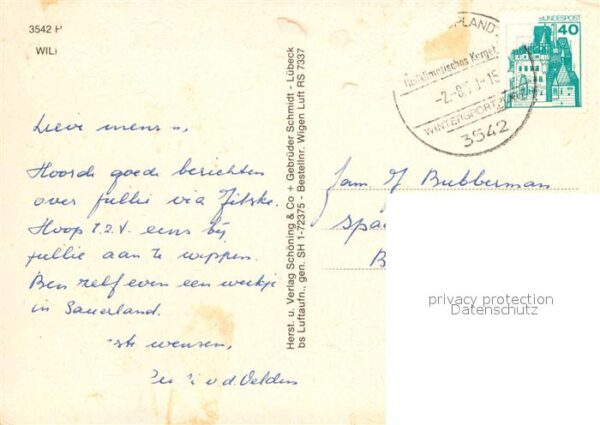 3542
WIL
Lieve mensen,
Hoorde goede berichten
over jullie via Jitske.
Hoop t.z.t. eens bij
jullie aan te wippen.
Ben zelf even een weekje
in Sauerland.
wensen,
v.d. Velden
Herst. u. Verlag Schöning & Co + Gebrüder Schmidt - Lübeck
bs Luftaufn., gen. SH 1-72375 - Bestellnr. Wigen Luft RS 7337
UPLAND
Heilklimatischer Kurort
-2.-8.7 -15
WINTERSPORTPLATZ
3542
DEUTSCHE BUNDESPOST
40
Fam Bubberman
Spa
B
privacy protection
Datenschutz